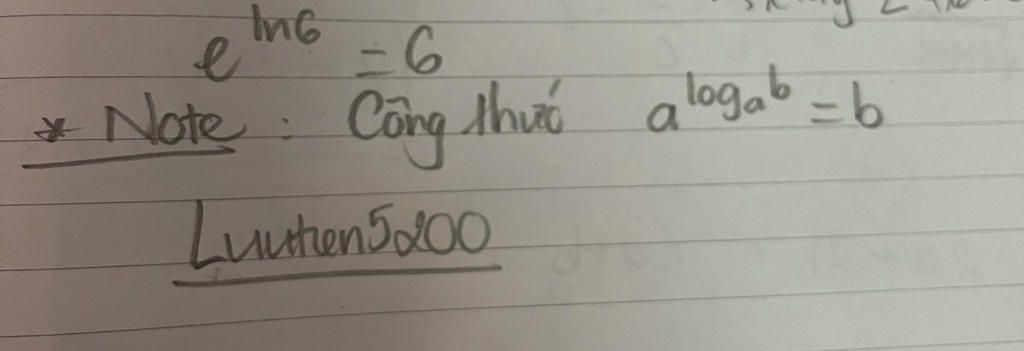 e^ln6 = 6
* Note : Công thức a^log_a b = b
Luuhien5200